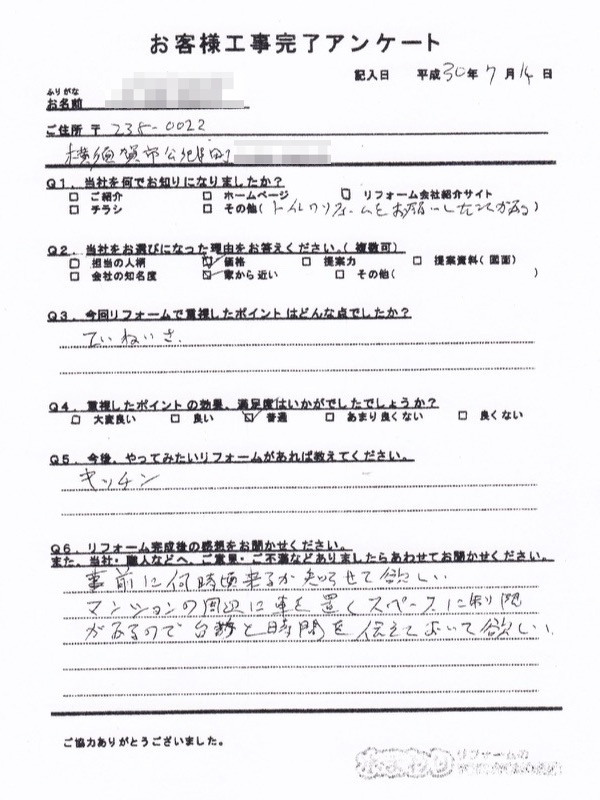 お客様工事完了アンケート
記入日 平成30年7月14日
ふりがな
お名前
ご住所 〒 235-0022
横須賀市公郷町
Q1．当社を何でお知りになりましたか？
□ ご紹介 □ ホームページ □ リフォーム会社紹介サイト
□ チラシ □ その他(トイレのリフォームをお願いしたことがある)
Q2．当社をお選びになった理由をお答えください。(複数可)
□ 担当の人柄 ☑ 価格 □ 提案力 □ 提案資料(図面)
□ 会社の知名度 ☑ 家から近い □ その他( )
Q3．今回リフォームで重視したポイントはどんな点でしたか？
ていねいさ.
Q4．重視したポイントの効果、満足度はいかがでしたでしょうか？
□ 大変良い □ 良い ☑ 普通 □ あまり良くない □ 良くない
Q5．今後、やってみたいリフォームがあれば教えてください。
キッチン
Q6．リフォーム完成後の感想をお聞かせください。
また、当社・職人などへ、ご意見・ご不満などありましたらあわせてお聞かせください。
事前に何時頃来るか知らせて欲しい
マンションの周辺に車を置くスペースに制限
があるので台数と時間を伝えておいて欲しい.
ご協力ありがとうございました。
リフォームの